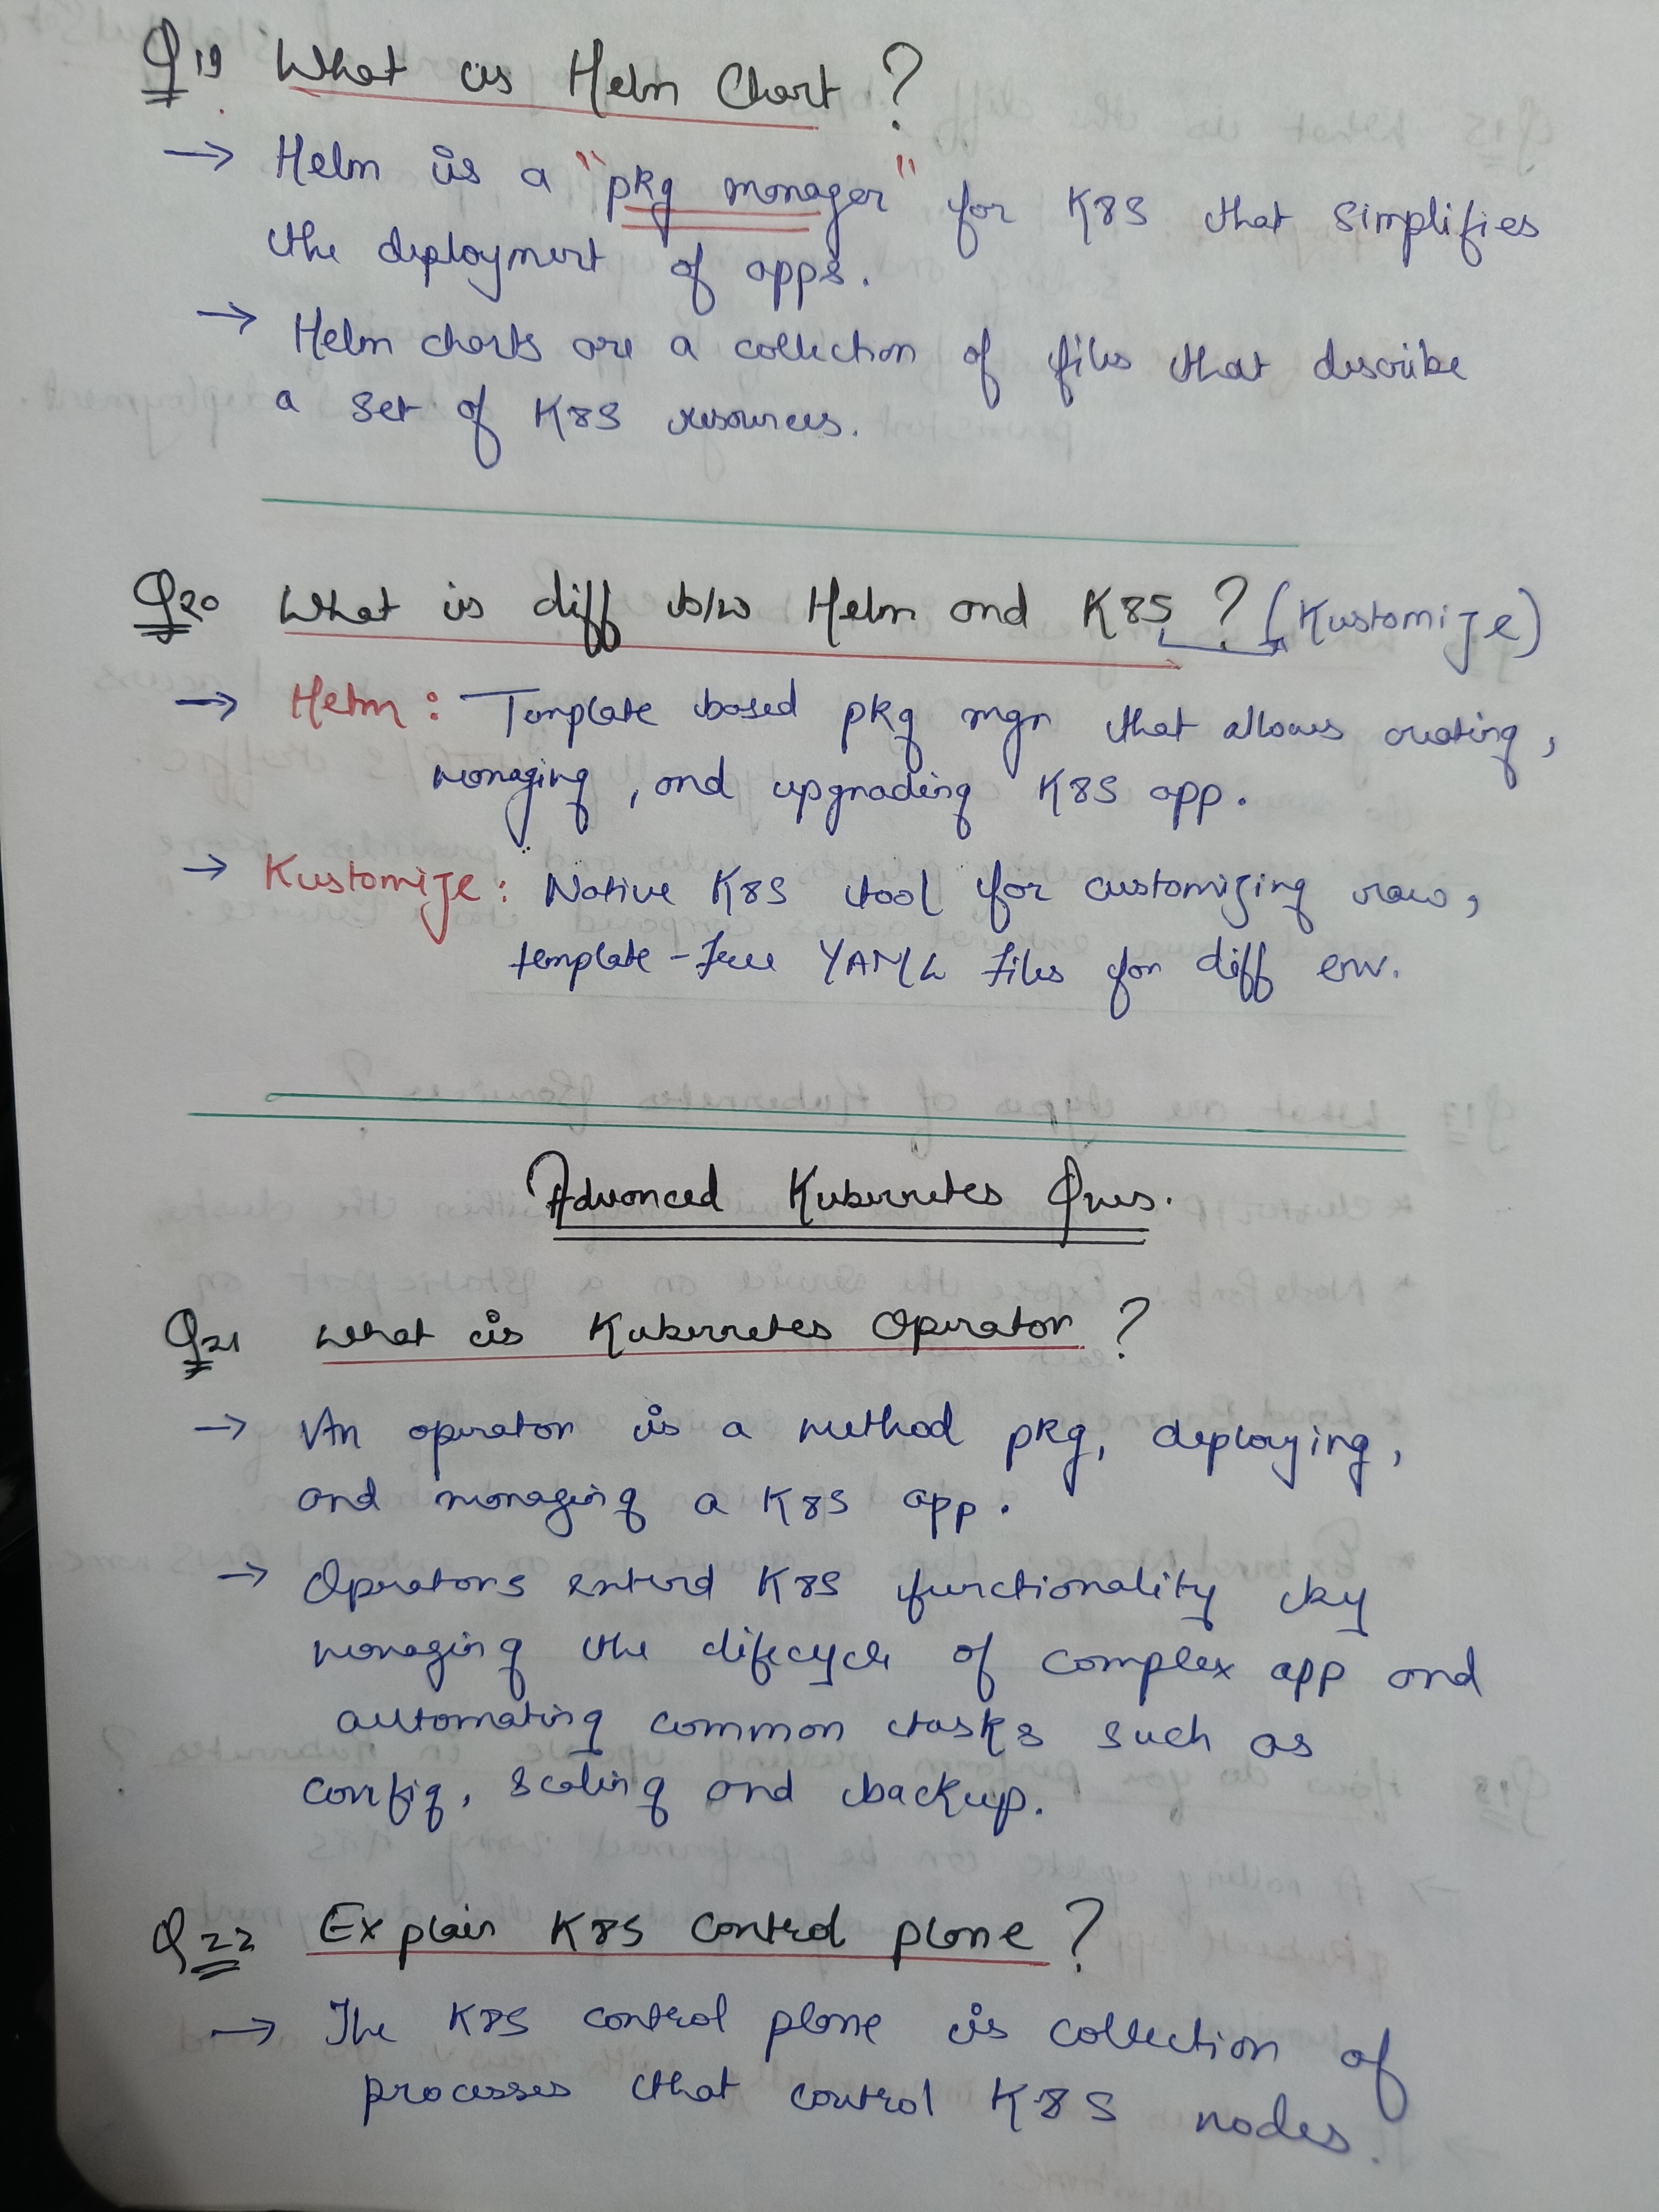 Q19 What is Helm Chart ?
→ Helm is a "pkg manager" for K8S that simplifies
the deployment of apps.
→ Helm charts are a collection of files that describe
a set of K8S resources.
Q20 What is diff b/w Helm and K8S ? (Kustomize)
→ Helm : Template based pkg mgr that allows creating,
managing, and upgrading K8S app.
→ Kustomize : Native K8S tool for customizing raw,
template-free YAML files for diff env.
Advanced Kubernetes Ques.
Q21 What is Kubernetes Operator ?
→ An operator is a method pkg, deploying,
and managing a K8S app.
→ Operators extend K8S functionality by
managing the lifecycle of complex app and
automating common tasks such as
config, scaling and backup.
Q22 Explain K8S control plane ?
→ The K8S control plane is collection of
processes that control K8S nodes.